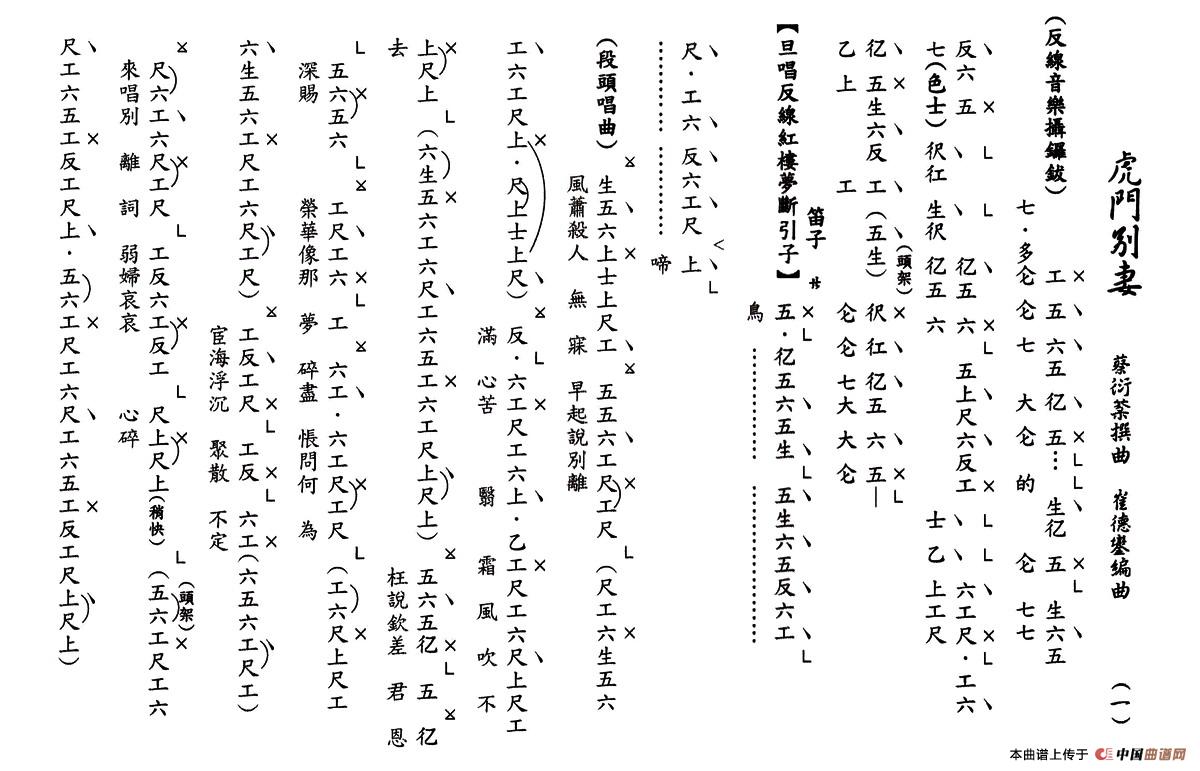 虎門別妻 蔡衍棻撰曲 崔德鑾編曲 (一)
(反線音樂攝鑼鈸) 工五六五 伬 五… 生伬 五 生六五
七·多仑仑七 大仑的 仑七七
反六五 伬五六 五上尺六反工 六工尺·工六
七(色士) 生 五六 士乙上工尺
伬 五生六反工(五生) 伬五六五—
乙上 工 (頭架) 仑仑七大大仑
笛子
【旦唱反線紅樓夢斷引子】 五·伬五六五生 五生六五反六工
鳥
尺·工六反六工尺 上
啼
(段頭唱曲) 生五六上士上尺工 五五六工尺工尺(尺工六生五六
風蕭殺人 無寐 早起說別離
工六工尺上·尺上士上尺) 反·六工尺工六上·乙工尺工六尺上尺工
滿心苦 翳霜風吹不
上尺上(六生五六工六尺工六五工六工尺上尺上) 五六五伬 五伬
去 枉說欽差 君恩
五六五六 工尺工六工 六工·六工尺工尺(工六尺上尺工
深賜 榮華像那夢 碎盡 悵問何為
六生五六工尺工六尺工尺) 工反工尺 工反 六工(六五六工尺工)
宦海浮沉 聚散 不定
尺六工六尺工尺 工反六工反工 尺上尺上(稍快) (五六工尺工六
來唱別離詞 弱婦哀哀 心碎 (頭架)
尺工六五工反工尺上·五六工尺工六尺工六五工反工尺上尺上)
本曲谱上传于 中国曲谱网